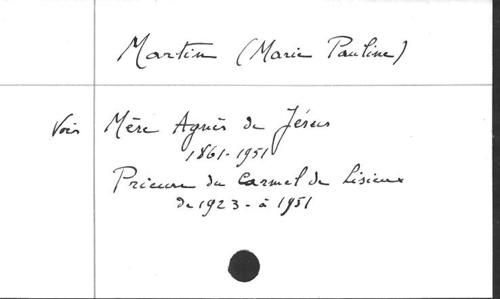 Martin (Marie Pauline)
Voir Mère Agnès de Jésus
1861-1951
Prieure du Carmel de Lisieux
de 1923 - à 1951